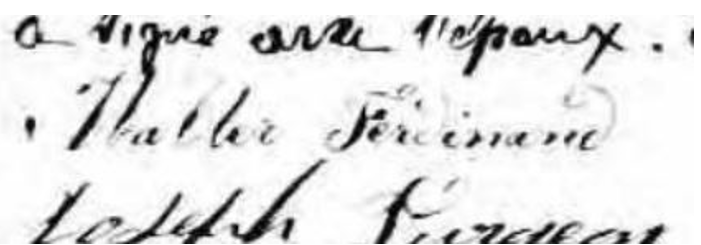 a signé avec l'époux.
Haller Ferdinand
Joseph